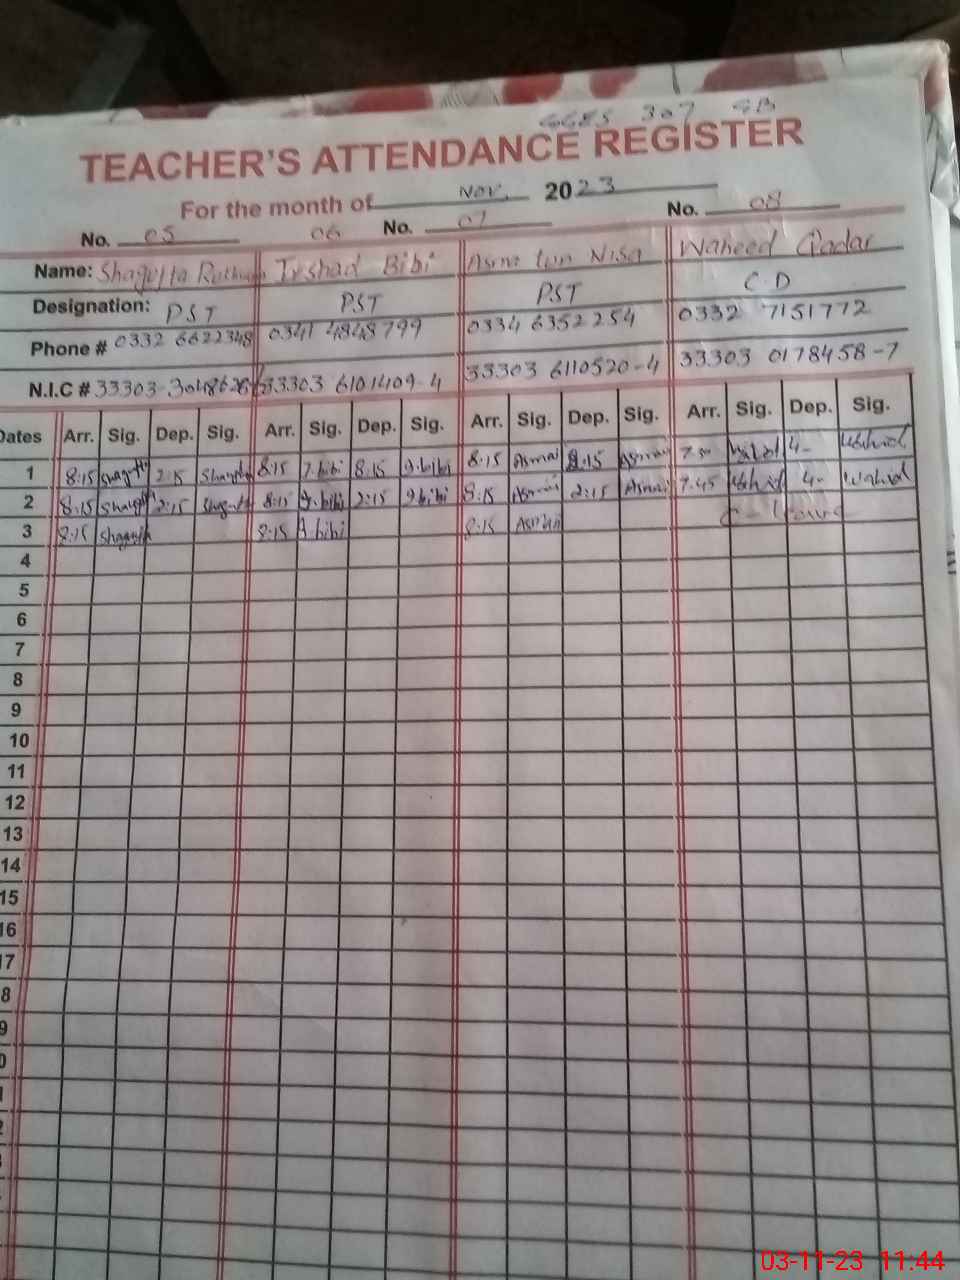 GGES 307 GB
TEACHER'S ATTENDANCE REGISTER
For the month of Nov. 2023
No. 05 06 No. 07 No. 08
Name: Shagufta Irshad Bibi Asma tun Nisa Waheed Qadar
Designation: PST PST PST C.D
Phone # 0332 6622348 0341 4848799 0334 6352254 0332 7151772
N.I.C # 33303 33303 6101409-4 33303 6110520-4 33303 0178458-7
Dates Arr. Sig. Dep. Sig. Arr. Sig. Dep. Sig. Arr. Sig. Dep. Sig. Arr. Sig. Dep. Sig.
1 8:15 Shagufta 2:15 Shagufta 8:15 bibi 8:15 bibi 8:15 Asma 8:15 Asma 4- Wahid
2 8:15 Shagufta 2:15 Shagufta 8:15 bibi 2:15 bibi 8:15 Asma 2:15 Asma 7.45 Wahid 4- Wahid
3 8:15 Shagufta 8:15 bibi 8:15 Asma C-leave
4
5
6
7
8
9
10
11
12
13
14
15
16
17
8
9
0
1
2
03-11-23 11:44